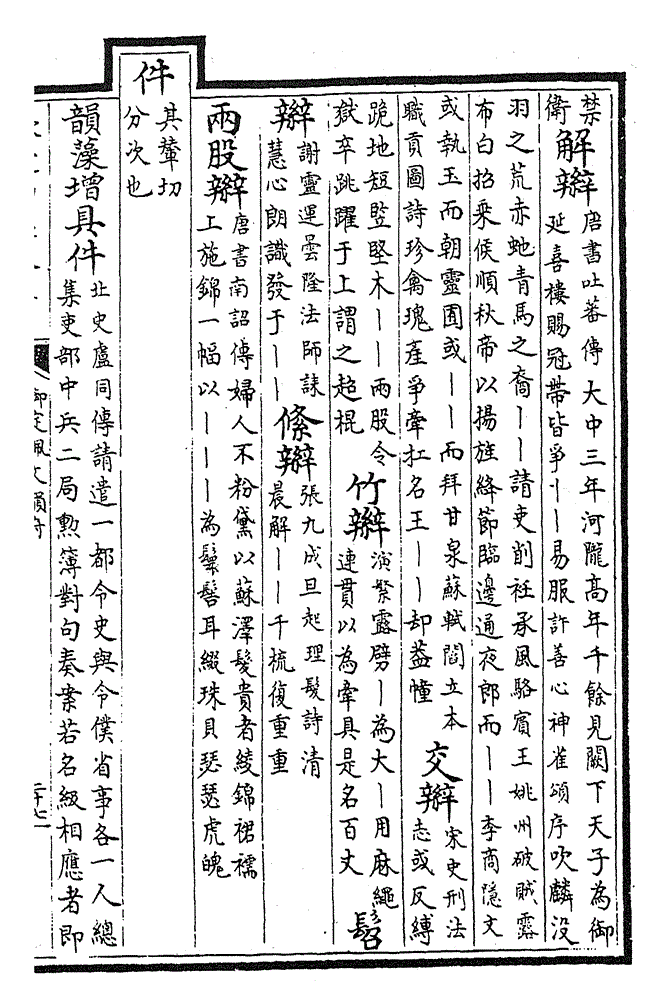 禁
衛
解辮
唐書吐蕃傳大中三年河隴高年千餘見闕下天子為御
延喜樓賜冠帶皆爭丨丨易服許善心神雀頌序吹麟沒
羽之荒赤虵青馬之裔丨丨請吏削衽承風駱賓王姚州破賊露
布白招乘候順秋帝以揚旌絳節臨邊通夜郎而丨丨李商隱文
或執玉而朝靈囿或丨丨而拜甘泉蘇軾閻立本
職貢圖詩珍禽瑰產爭牽扛名王丨丨却蓋幢
交辮
宋史刑法
志或反縛
跪地短豎堅木丨丨兩股令
獄卒跳躍于上謂之超棍
竹辮
演繁露劈丨為大丨用麻繩
連貫以為牽具是名百丈
髫
辮
謝靈運曇隆法師誄
慧心朗識發于丨丨
絛辮
張九成旦起理髮詩清
晨解丨丨千梳復重重
兩股辮
唐書南詔傳婦人不粉黛以蘇澤髮貴者綾錦裙襦
上施錦一幅以丨丨丨為鬟髻耳綴珠貝瑟瑟虎魄
件
其輦切
分次也
韻藻增具件
北史盧同傳請遣一都令史與令僕省事各一人總
集吏部中兵二局勲簿對句奏案若名級相應者即